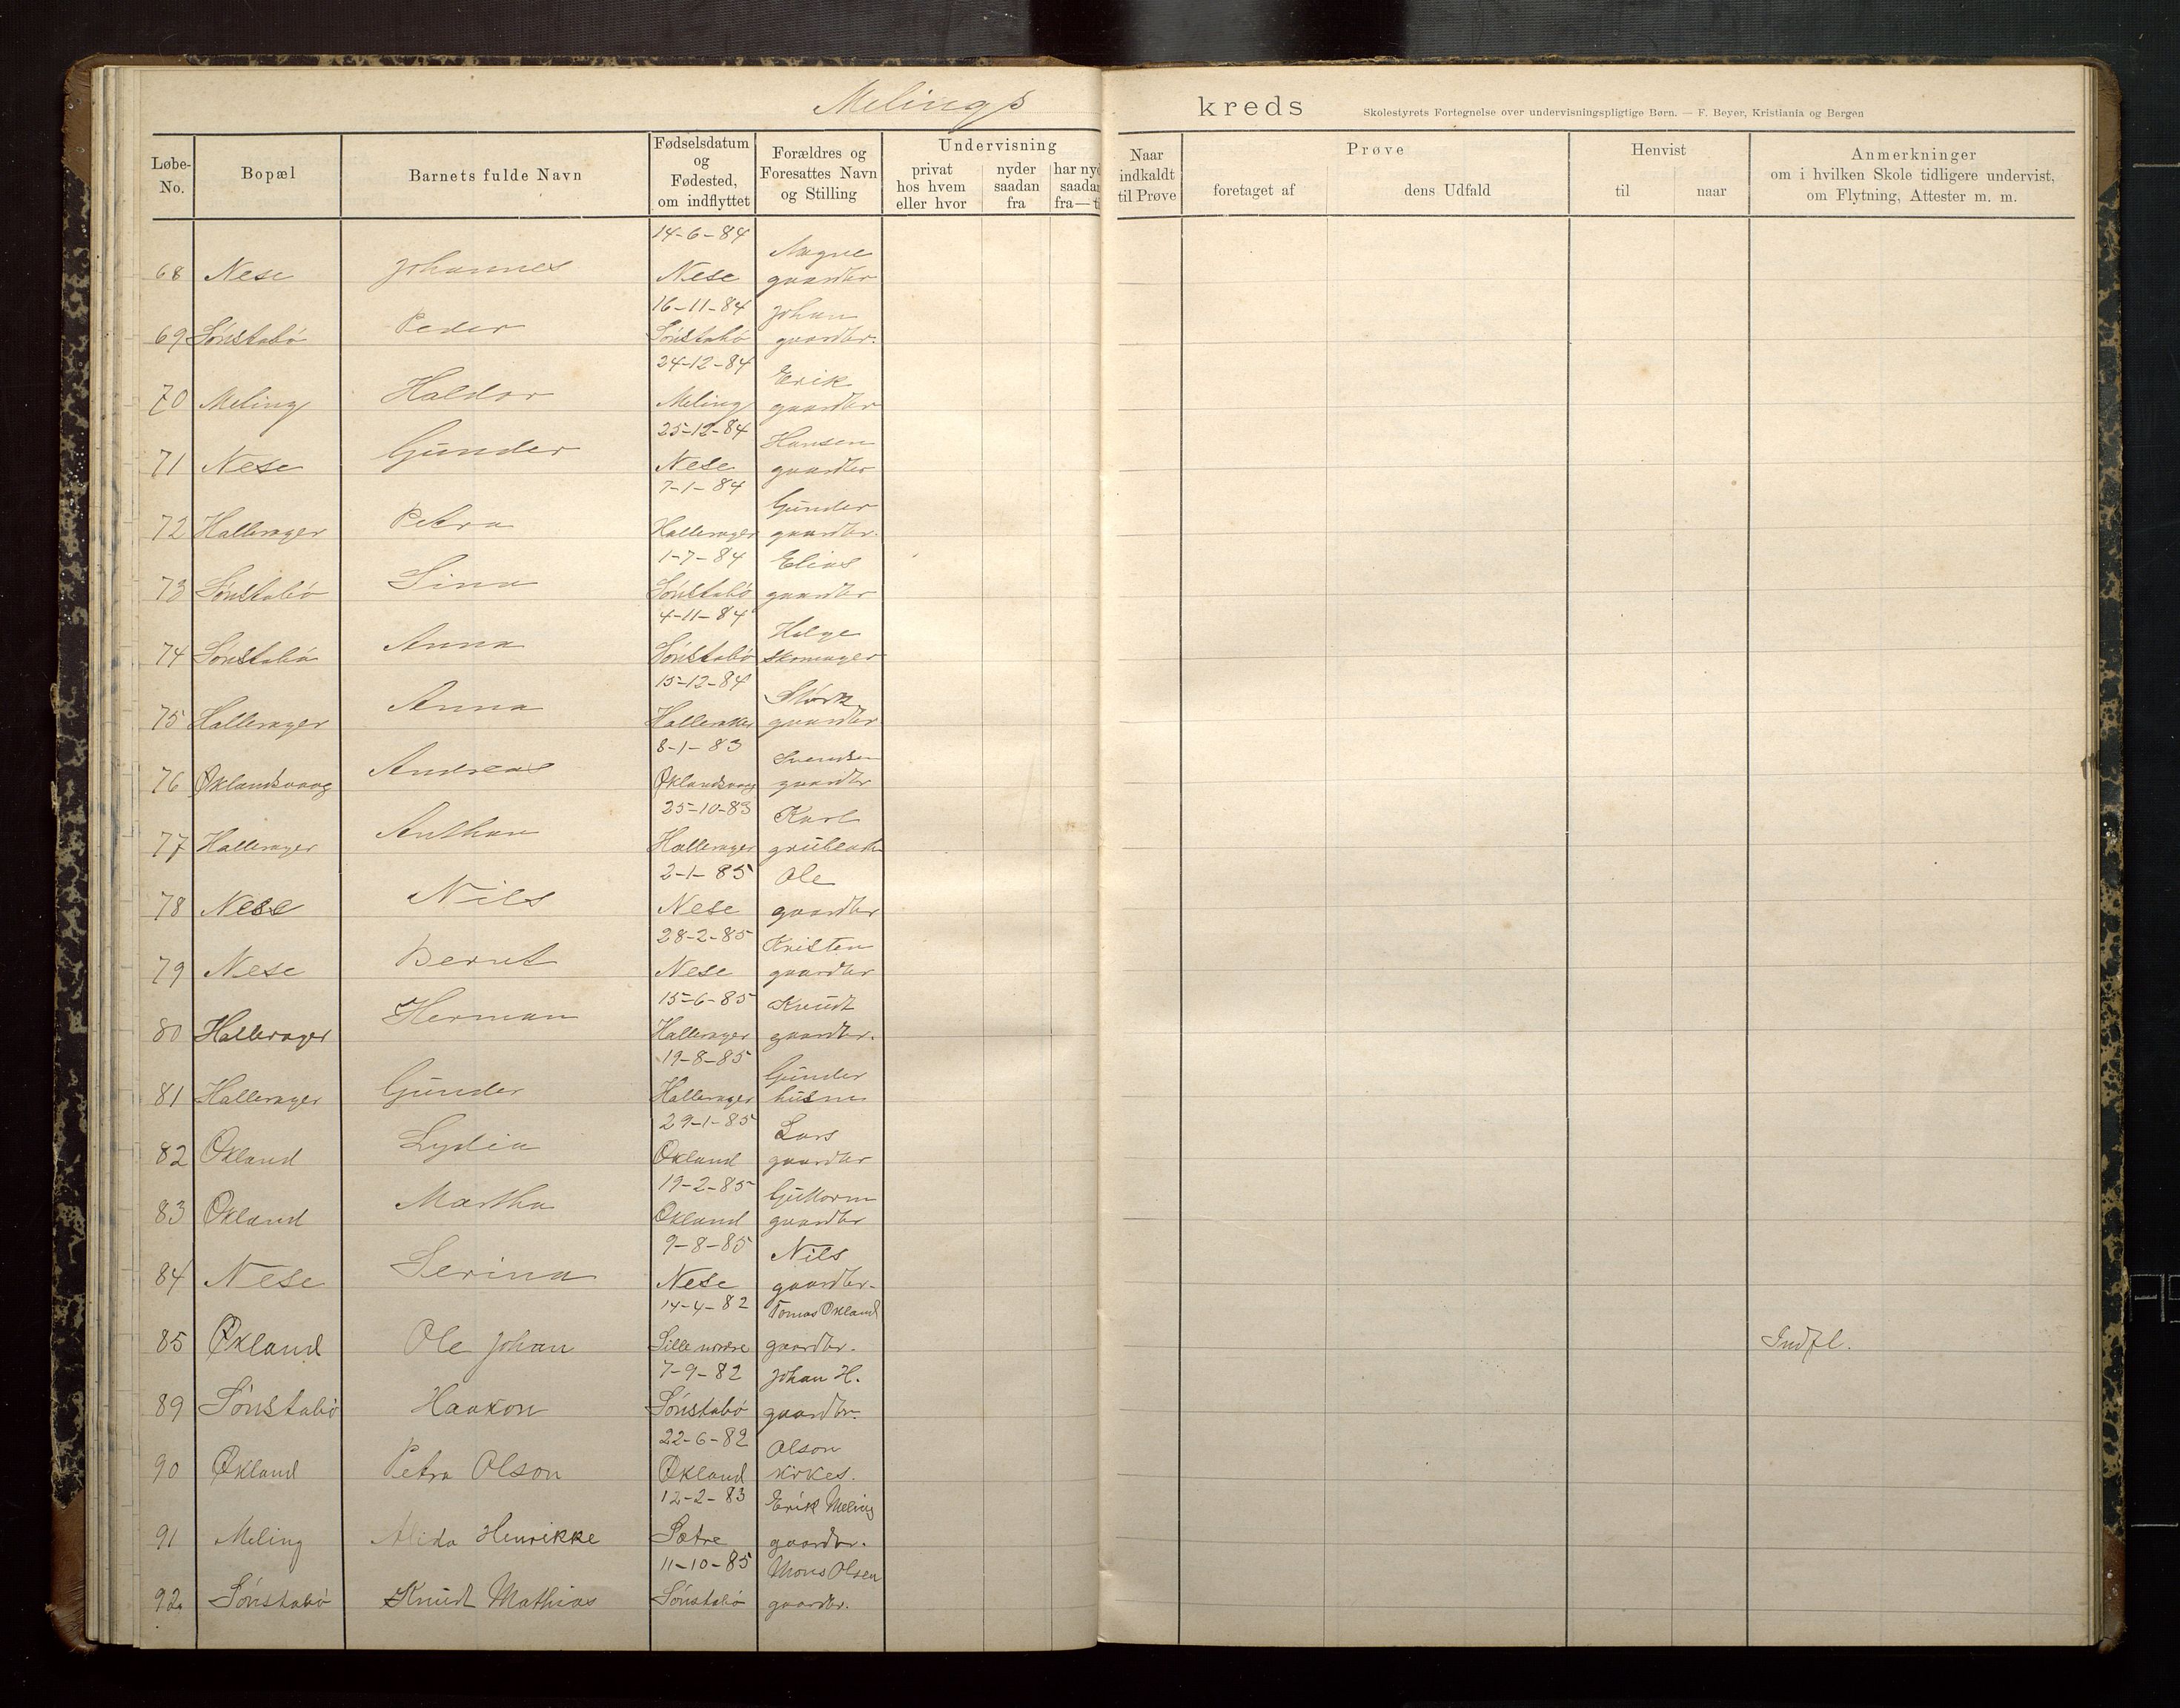 Melings kreds Skolestyrets Fortegnelse over undervisningspligtige Børn. — F. Beyer, Kristiania og Bergen
Løbe-No. Bopæl Barnets fulde Navn Fødselsdatum og Fødested, om indflyttet Forældres og Foresattes Navn og Stilling Undervisning privat hos hvem eller hvor nyder saadan fra har nyd saadan fra — t Naar indkaldt til Prøve Prøve foretaget af dens Udfald Henvist til naar Anmerkninger om i hvilken Skole tidligere undervist, om Flytning, Attester m. m.
14-6-84 Magne
68 Nese Johannes Nese gaardbr
16-11-84 Johan
69 Sønstabø Peder Sønstabø gaardbr.
24-12-84 Erik
70 Meling Haldor Meling gaardbr
25-12-84 Hansen
71 Nese Gunder Nese gaardbr
7-1-84 Gunder
72 Hallerager Petra Hallerager gaardbr.
1-7-84 Elias
73 Sønstabø Sina Sønstabø gaardbr
4-11-84 Helge
74 Sønstabø Anna Sønstabø skomager
15-12-84 Størk
75 Hallerager Anna Halleraker gaardbr
8-1-83 Svendsen
76 Øklandsvaag Andreas Øklandsvaag gaardbr
25-10-83 Karl
77 Hallerager Anthon Hallerager
2-1-85 Ole
78 Nese Nils Nese gaardbr
28-2-85 Kristen
79 Nese Bernt Nese gaardbr
15-6-85 Knudt
80 Hallerager Herman Hallerager gaardbr.
19-8-85 Gunder
81 Hallerager Gunder Hallerager husm
29-1-85 Lars
82 Økland Lydia Økland gaardbr
19-2-85 Guttorm
83 Økland Martha Økland gaardbr
9-8-85 Nils
84 Nese Serina Nese gaardbr.
14-4-82 Tomas Økland
85 Økland Ole Johan gaardbr. Indfl.
7-9-82 Johan H.
89 Sønstabø Haakon Sønstabø gaardbr.
22-6-82 Olson
90 Økland Petra Olson Økland kirkes.
12-2-83 Erik Meling
91 Meling Alida Henrikke Sætre gaardbr.
11-10-85 Mons Olsen
92. Sønstabø Knudt Mathias Sønstabø gaardbr.